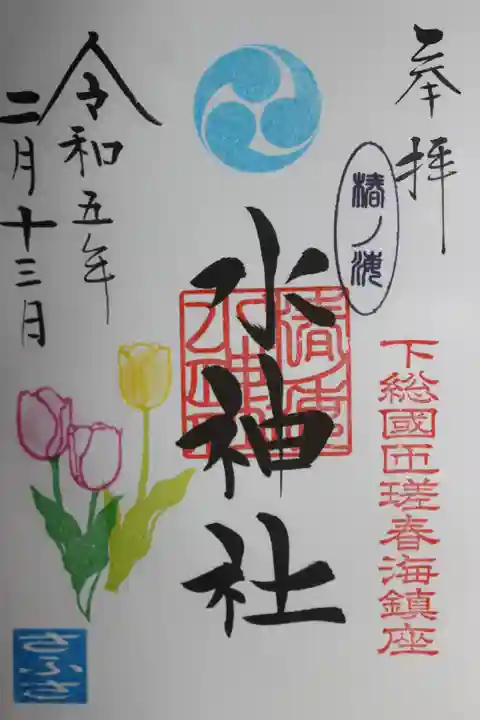 奉拝
椿ノ海
下総國匝瑳春海鎮座
水神社
令和五年
二月十三日